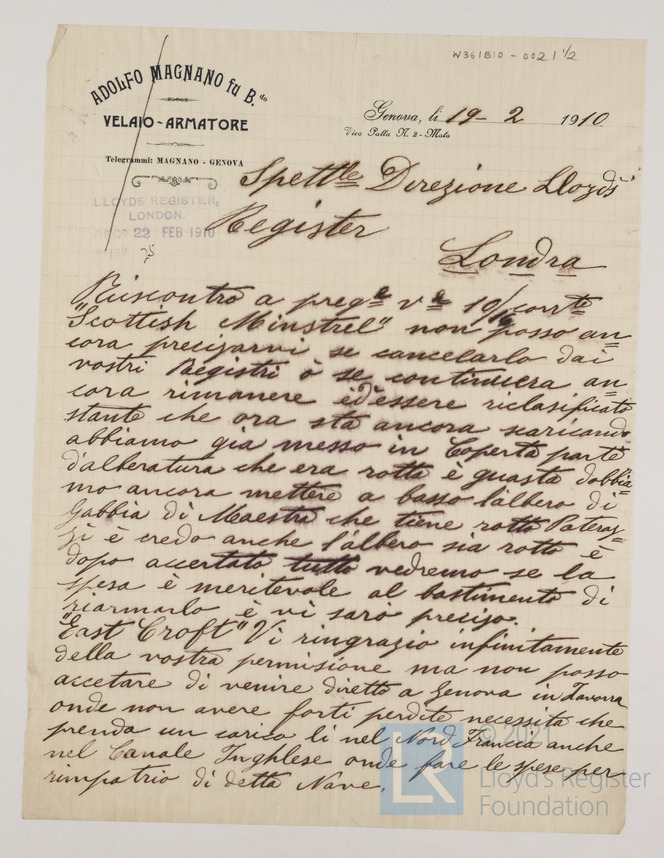 W361B10-0021 1/2
ADOLFO MAGNANO fu B.do
VELAIO-ARMATORE
Telegrammi: MAGNANO - GENOVA
Genova, li 19 - 2 1910
Vico Palla N. 2 - Molo
LLOYDS REGISTER,
LONDON.
22 FEB 1910
Spettle Direzione Lloyds
Register
Londra
Riscontro a prege va 10/ corrte
"Scottish Minstrel" non posso an=
cora precisarvi se cancelarlo dai
vostri Registri ò se continuera an=
cora rimanere èd'essere riclasificato
stante che ora sta ancora scaricando
abbiamo già messo in Coperta parte
d'alberatura che era rotta è guasta dobbia=
mo ancora mettere a basso l'albero di
Gabbia di Maestra che tiene rotto Pataraz=
zi è credo anche l'albero sia rotto è
dopo accertato tutto vedremo se la
spesa è meritevole al bastimento di
riarmarlo è vi sarò preciso.
"East Croft" Vi ringrazio infinitamente
della vostra permisione ma non posso
accetare di venire diretto a Genova in Zavorra
onde non avere forti perdite necessita che
prenda un carico li nel Nord Francia anche
nel Canale Inghlese onde fare le spese per
rimpatrio di detta Nave.
© 2021
LR
Lloyd's Register
Foundation